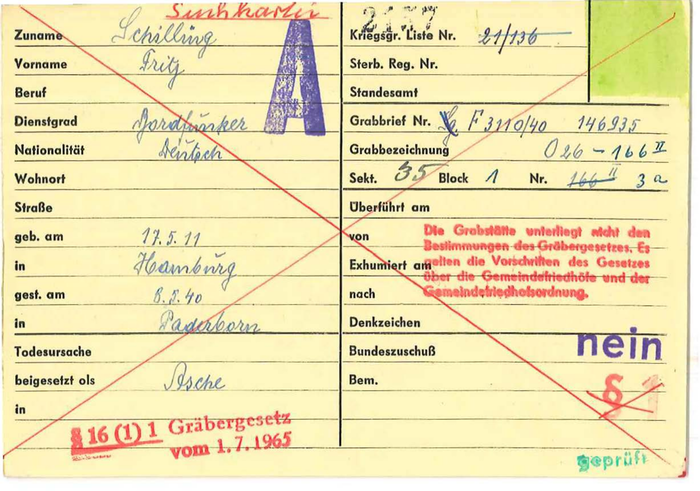 Suchkartei
2157
Zuname Schilling
Vorname Fritz
Beruf
Dienstgrad Bordfunker
Nationalität Deutsch
Wohnort
Straße
geb. am 17.5.11
in Hamburg
gest. am 8.5.40
in Paderborn
Todesursache
beigesetzt als Asche
in
§ 16 (1) 1 Gräbergesetz
vom 1.7.1965
A
Kriegsgr. Liste Nr. 21/136
Sterb. Reg. Nr.
Standesamt
Grabbrief Nr. F 3110/40 146935
Grabbezeichnung O 26 - 166 II
Sekt. 35 Block 1 Nr. 166 II 3a
Überführt am
von
Die Grabstätte unterliegt nicht den
Bestimmungen des Gräbergesetzes. Es
gelten die Vorschriften des Gesetzes
über die Gemeindefriedhöfe und der
Gemeindefriedhofsordnung.
Exhumiert am
nach
Denkzeichen
Bundeszuschuß nein
Bem.
§ 1
geprüft